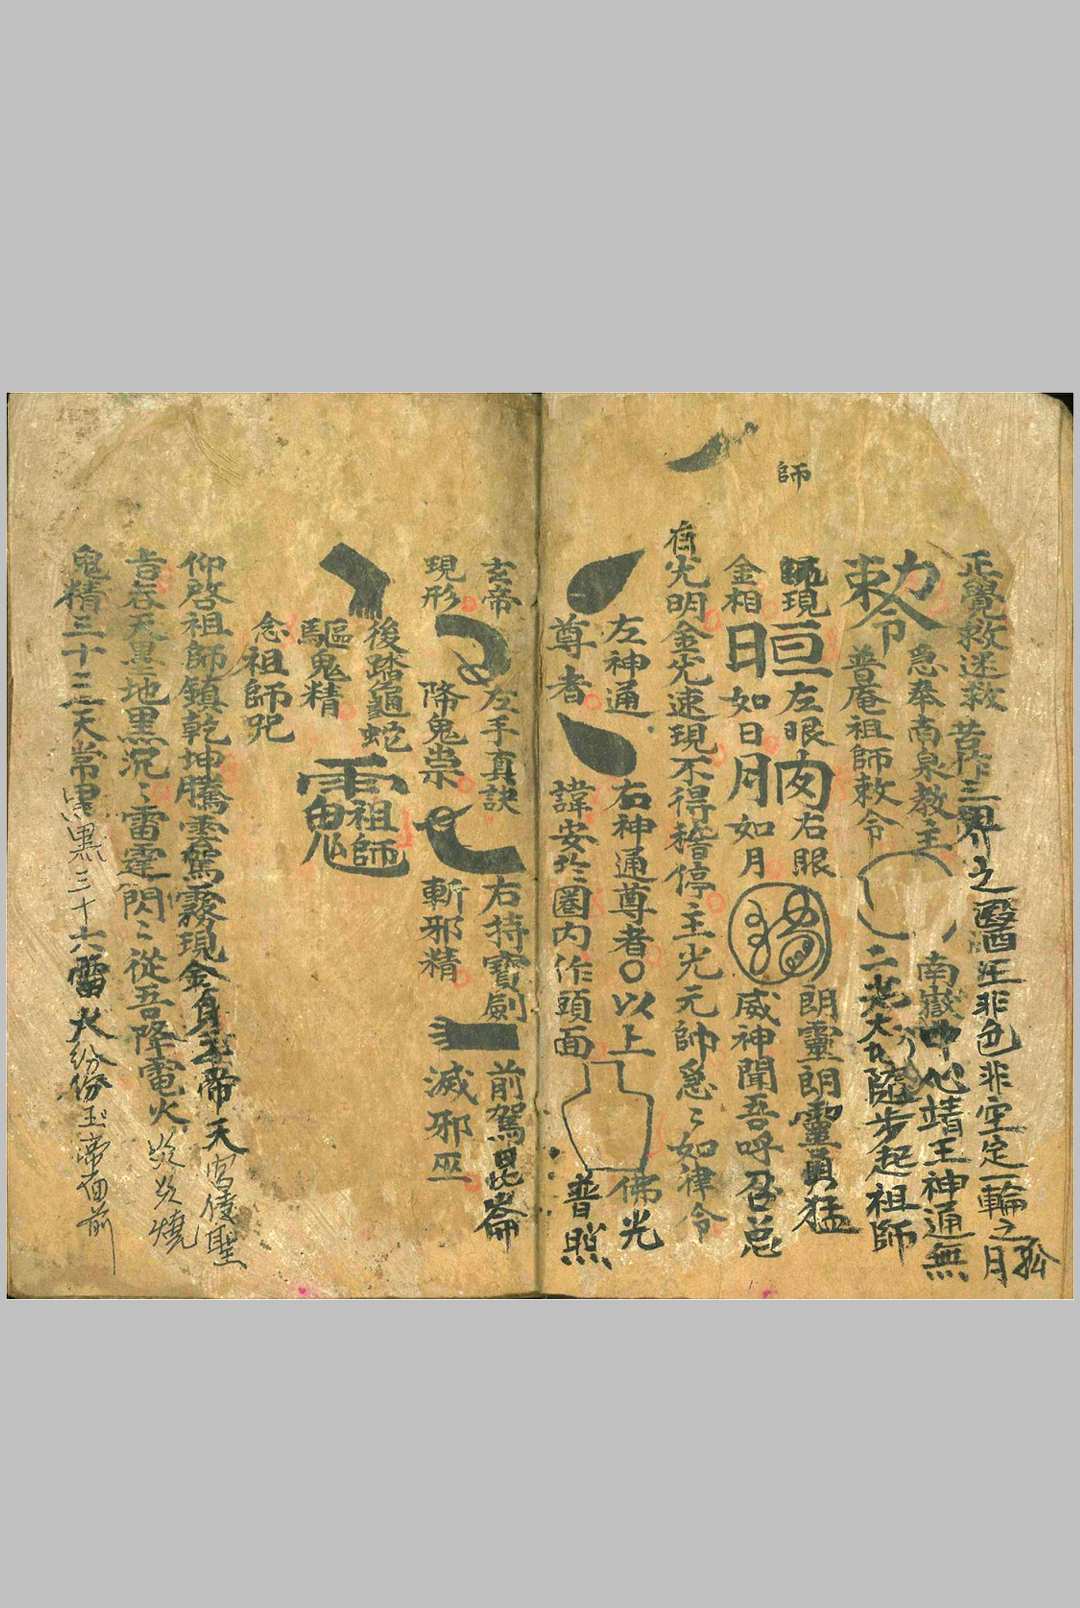 師
正覺救迷救苦作三界之醫王非色非空定一輪之孤月
急奉南泉教主
南嶽
心靖王神通無
敕令
普庵祖師敕令
二老大
隨步起祖師
師現
左眼
右眼
朗靈朗靈勇猛
金相日如日月如月
威神聞吾呼召急
有光明金光速現不得稽停主光元帥急〻如律令
左神通
右神通尊者〇以上
佛光
尊者
諱安於圈内作頭面
普照
玄帝
左手真訣
右持寶劍
前駕崑崙
現形
降鬼祟
斬邪精
滅邪巫
後踏龜蛇
驅鬼精
祖師
念祖師咒
仰啓祖師鎮乾坤騰雲駕霧現金身玉帝天
聖
吞天黑地黑沉〻雷霆閃〻從吾降電火
炎炎燒
鬼精三十三天常黑
黑三十六雷火紛紛玉帝面前